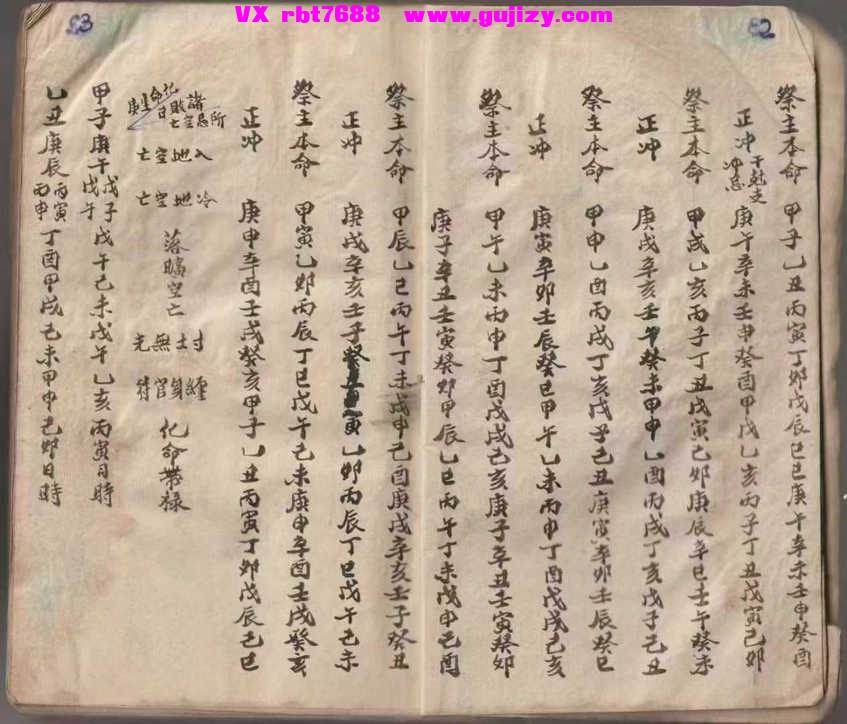 VX rbt7688 www.gujizy.com
52
53
祭主本命 甲子乙丑丙寅丁卯戊辰己巳庚午辛未壬申癸酉
正冲 干尅支冲忌 庚午辛未壬申癸酉甲戌乙亥丙子丁丑戊寅己卯
祭主本命 甲戌乙亥丙子丁丑戊寅己卯庚辰辛巳壬午癸未
正冲 庚戌辛亥壬午癸未甲申乙酉丙戌丁亥戊子己丑
祭主本命 甲申乙酉丙戌丁亥戊子己丑庚寅辛卯壬辰癸巳
正冲 庚寅辛卯壬辰癸巳甲午乙未丙申丁酉戊戌己亥
祭主本命 甲午乙未丙申丁酉戊戌己亥庚子辛丑壬寅癸卯
庚子辛丑壬寅癸卯甲辰乙巳丙午丁未戊申己酉
祭主本命 甲辰乙巳丙午丁未戊申己酉庚戌辛亥壬子癸丑
正冲 庚戌辛亥壬子癸丑寅乙卯丙辰丁巳戊午己未
祭主本命 甲寅乙卯丙辰丁巳戊午己未庚申辛酉壬戌癸亥
正冲 庚申辛酉壬戌癸亥甲子乙丑丙寅丁卯戊辰己巳
所忌諸空亡敗日化命生庚
入地空亡 冷地空亡 落曠空亡 封土無光 纏身官符 化命帶祿
甲子庚午戊子戊午戊午己未戊午乙亥丙寅日時
乙丑庚辰丙寅丙申丁酉甲戌己未甲申己卯日時